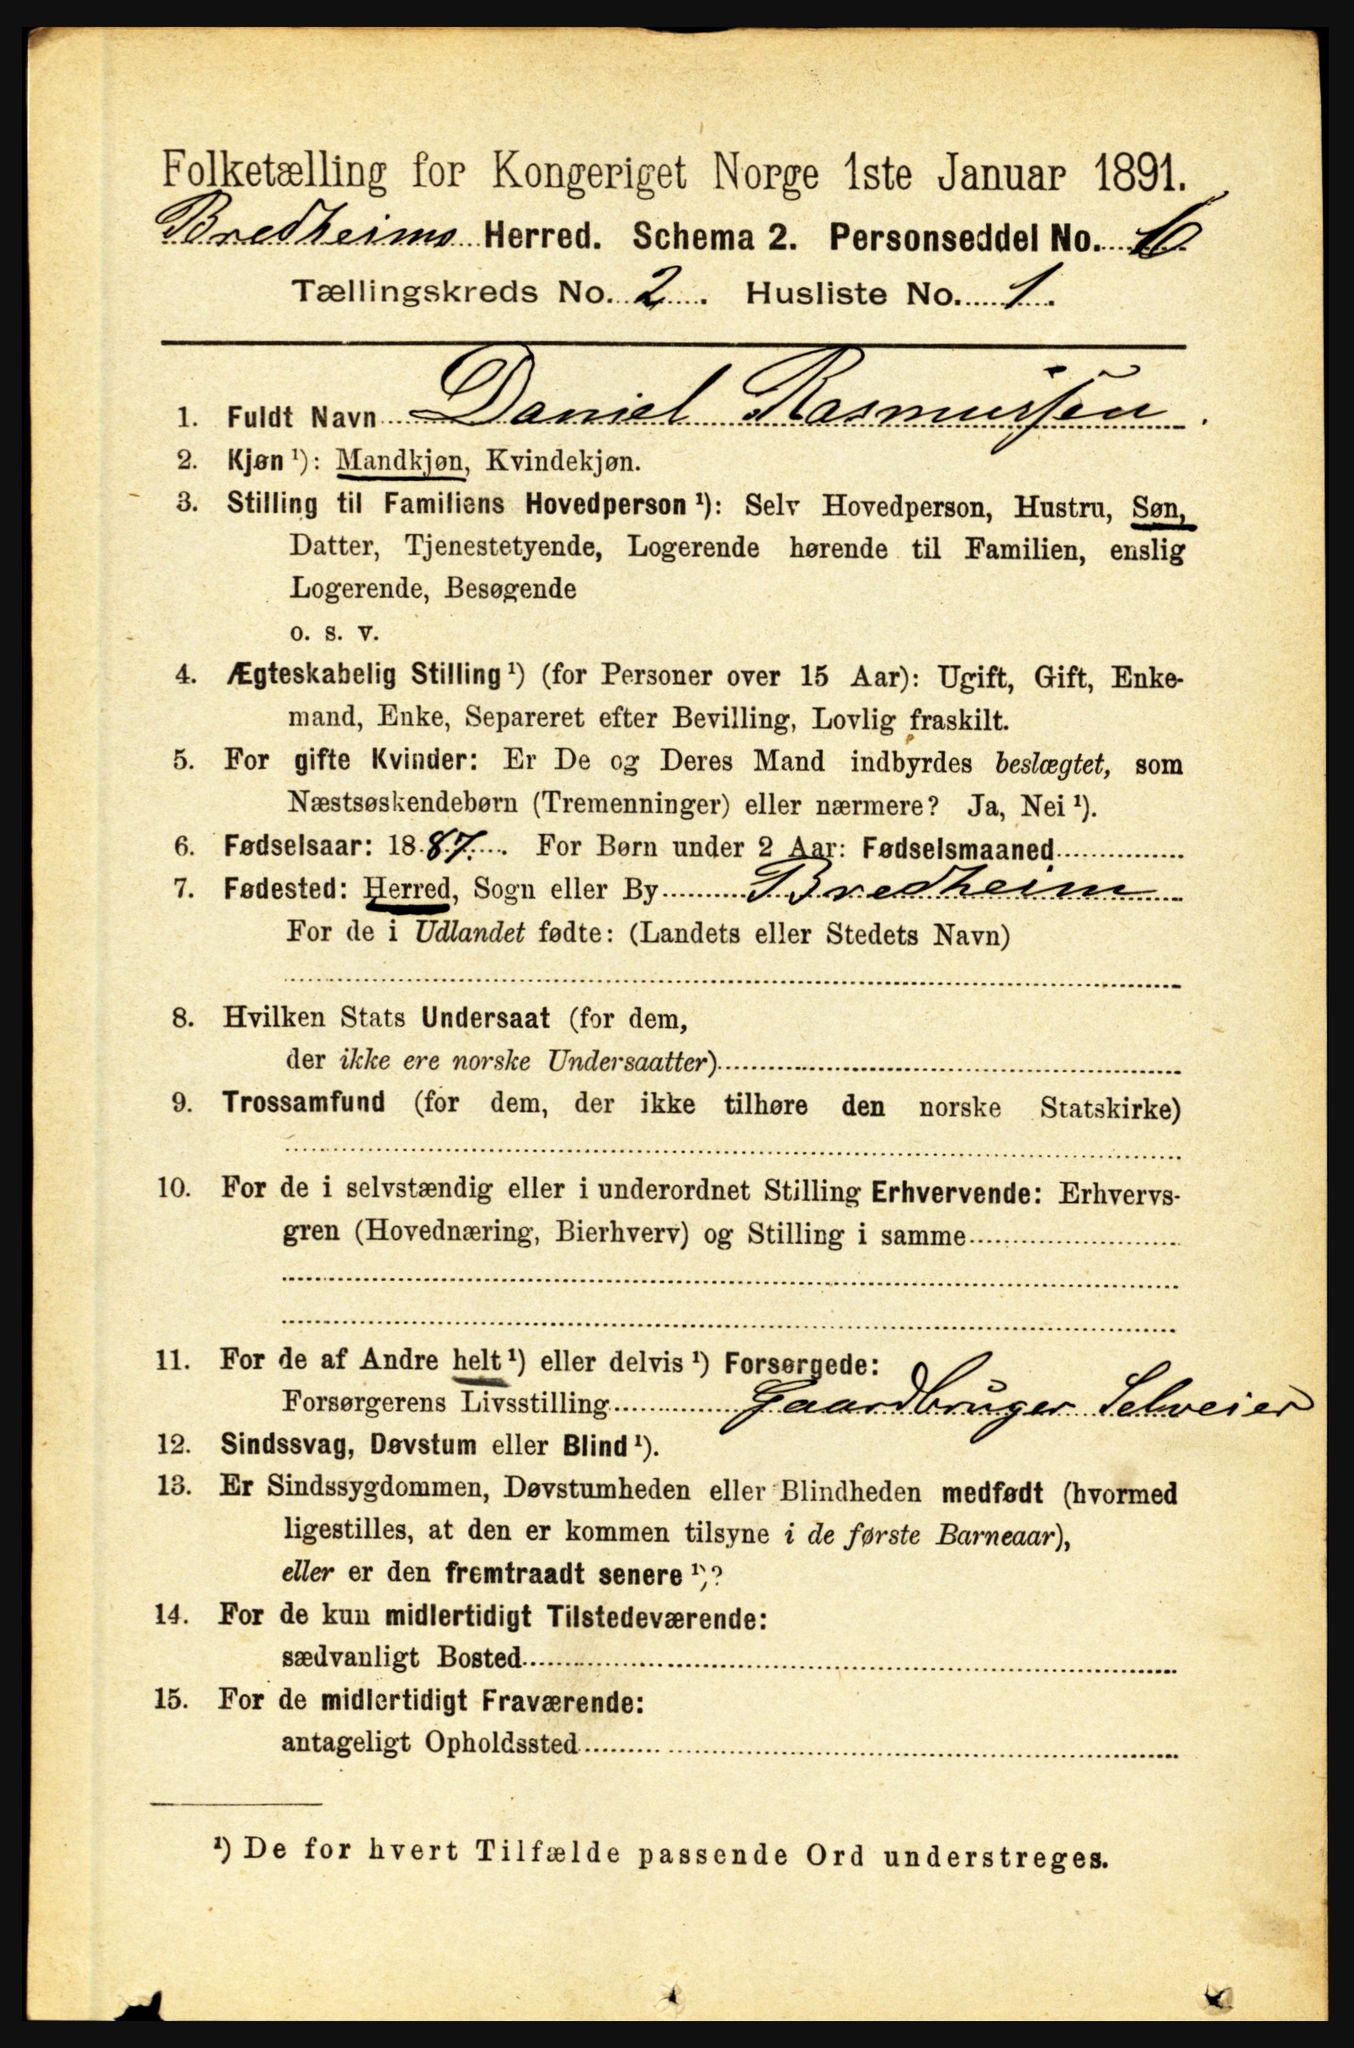 Folketælling for Kongeriget Norge 1ste Januar 1891.
Bredheims Herred. Schema 2. Personseddel No.
Tællingskreds No. 2. Husliste No. 1.
1. Fuldt Navn Daniel Rasmussen.
2. Kjøn ¹): Mandkjøn, Kvindekjøn.
3. Stilling til Familiens Hovedperson ¹): Selv Hovedperson, Hustru, Søn,
Datter, Tjenestetyende, Logerende hørende til Familien, enslig
Logerende, Besøgende
o. s. v.
4. Ægteskabelig Stilling ¹) (for Personer over 15 Aar): Ugift, Gift, Enke-
mand, Enke, Separeret efter Bevilling, Lovlig fraskilt.
5. For gifte Kvinder: Er De og Deres Mand indbyrdes beslægtet, som
Næstsøskendebørn (Tremenninger) eller nærmere? Ja, Nei ¹).
6. Fødselsaar: 1887. For Børn under 2 Aar: Fødselsmaaned
7. Fødested: Herred, Sogn eller By Bredheim
For de i Udlandet fødte: (Landets eller Stedets Navn)
8. Hvilken Stats Undersaat (for dem,
der ikke ere norske Undersaatter)
9. Trossamfund (for dem, der ikke tilhøre den norske Statskirke)
10. For de i selvstændig eller i underordnet Stilling Erhvervende: Erhvervs-
gren (Hovednæring, Bierhverv) og Stilling i samme
11. For de af Andre helt ¹) eller delvis ¹) Forsørgede:
Forsørgerens Livsstilling Gaardbruger Selveier
12. Sindssvag, Døvstum eller Blind ¹).
13. Er Sindssygdommen, Døvstumheden eller Blindheden medfødt (hvormed
ligestilles, at den er kommen tilsyne i de første Barneaar),
eller er den fremtraadt senere ¹)?
14. For de kun midlertidigt Tilstedeværende:
sædvanligt Bosted
15. For de midlertidigt Fraværende:
antageligt Opholdssted
¹) De for hvert Tilfælde passende Ord understreges.